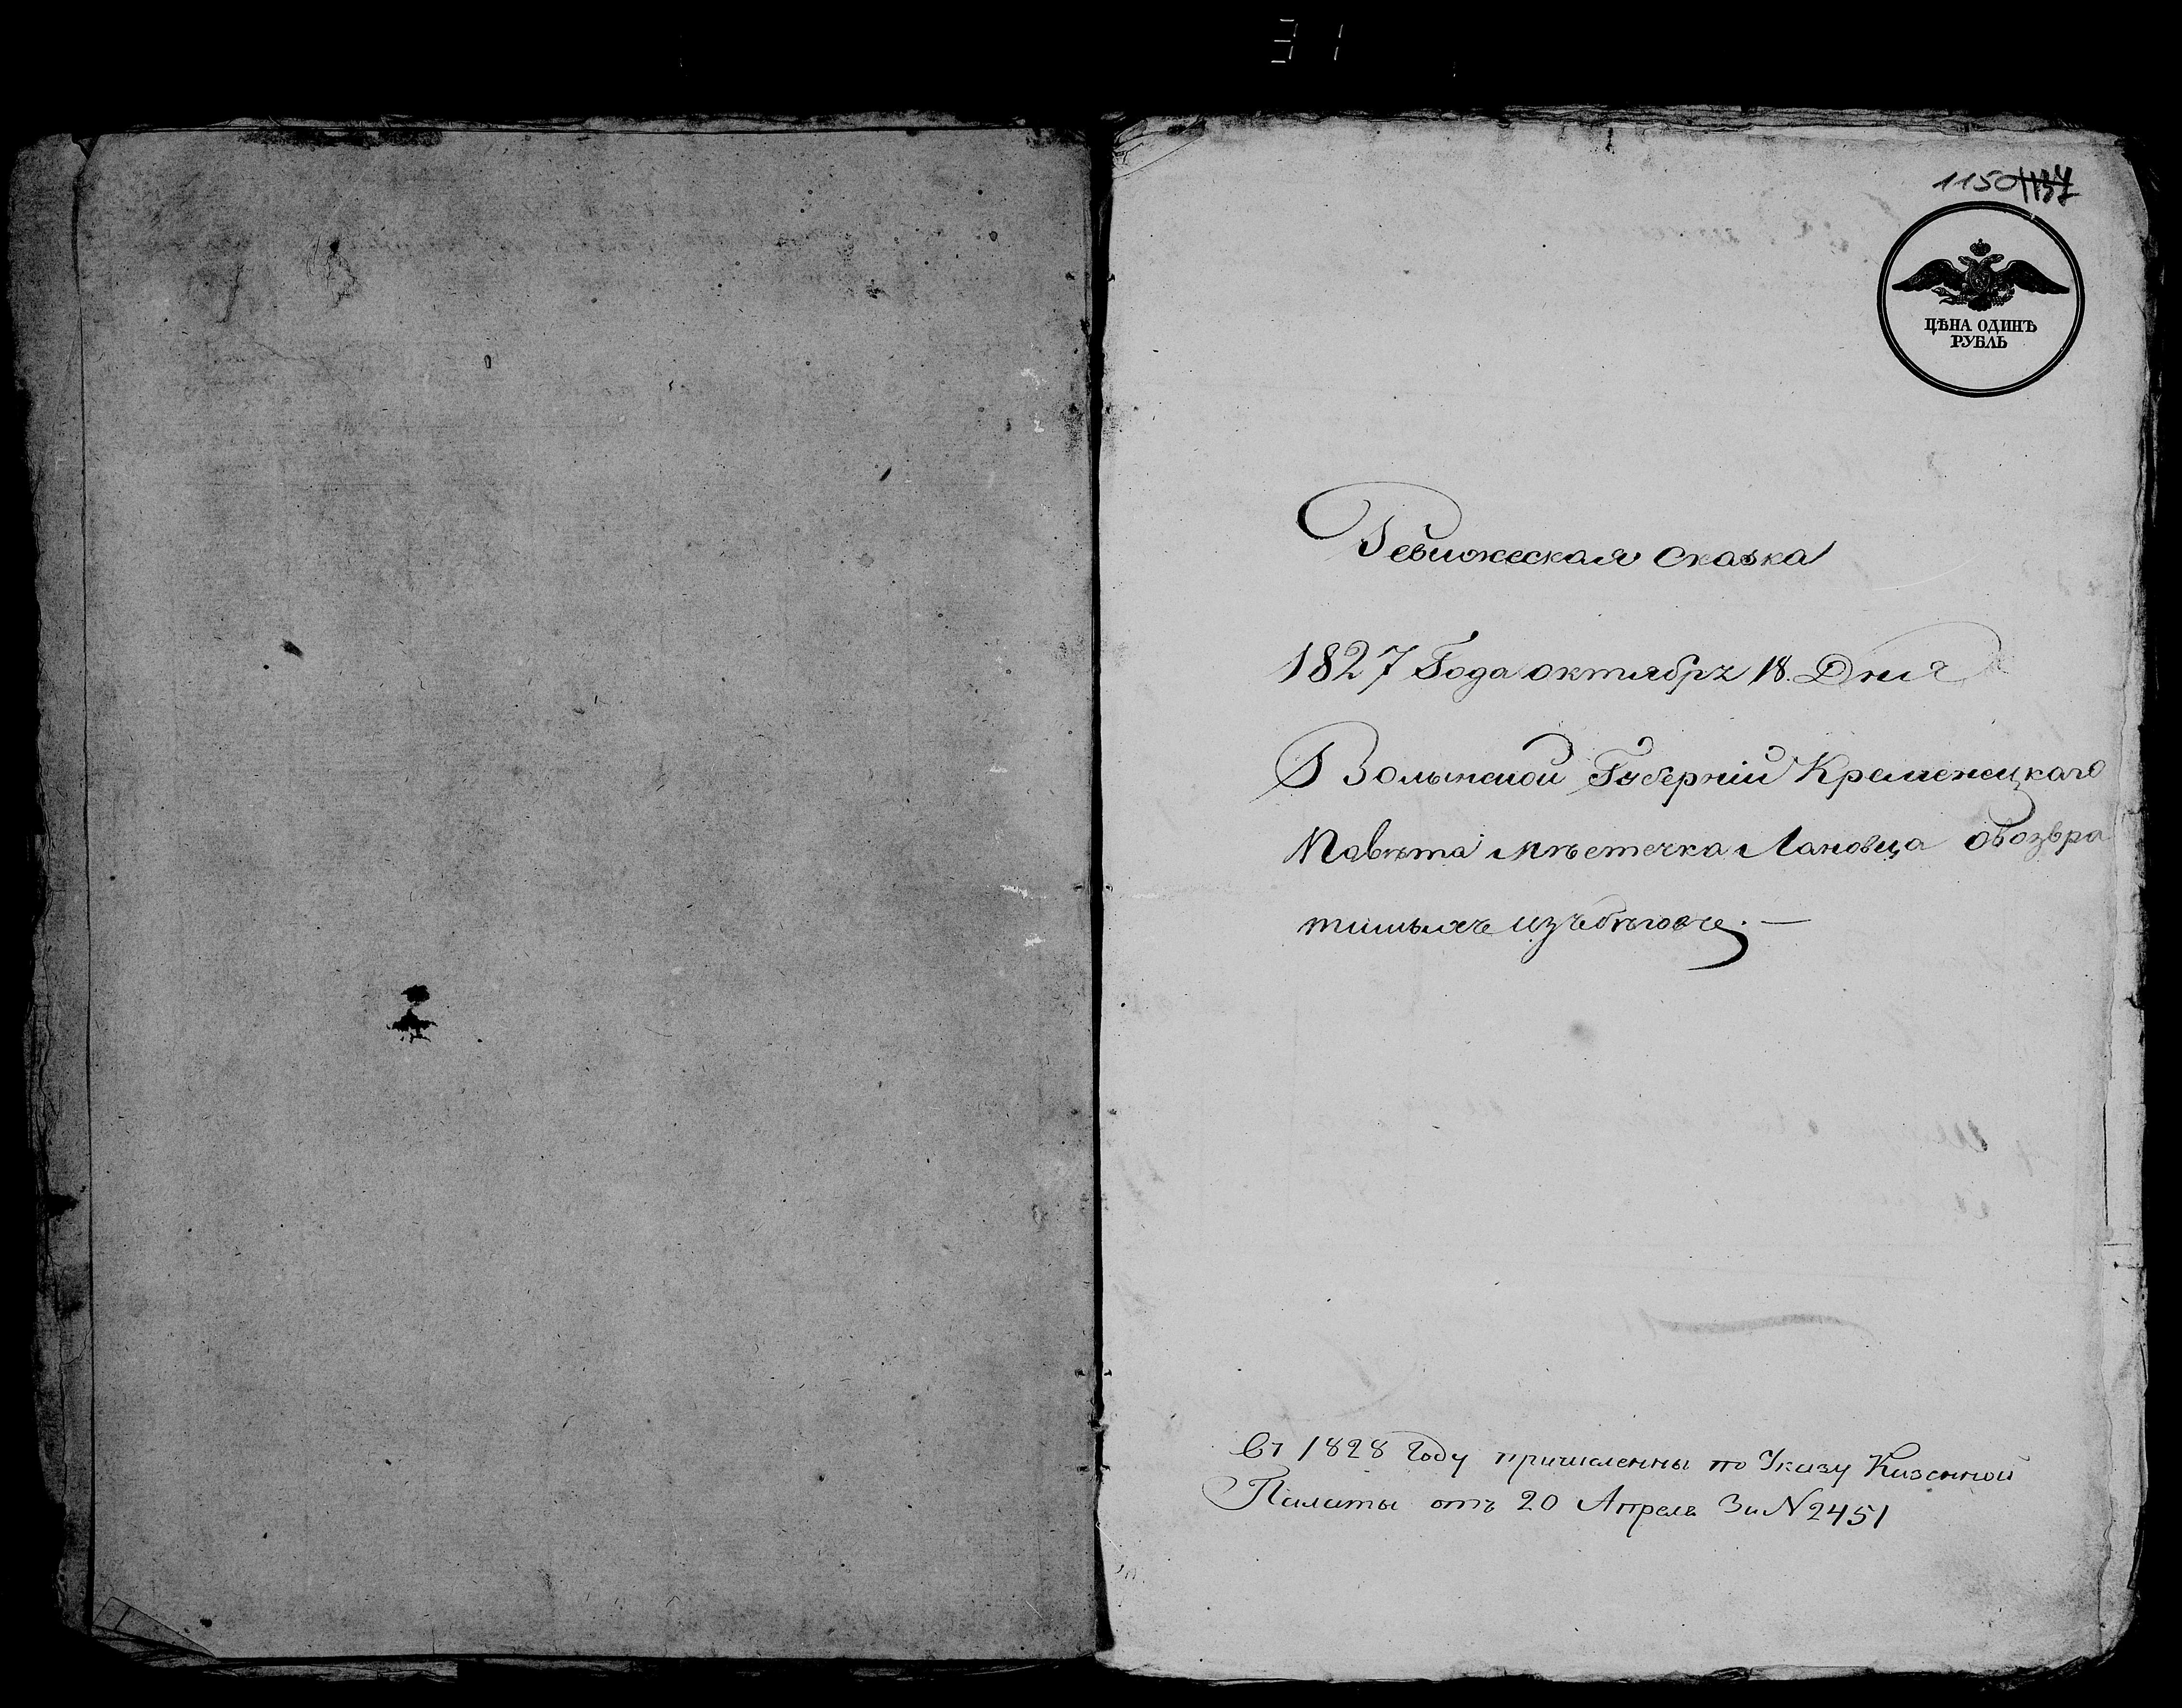 31
1150 1137
ЦѢНА ОДИНЪ
РУБЛЬ
Ревижеская сказка
1827 Года октября 18. Дня
Волынской Губерніи Кременецкаго
Павѣта мѣстечка Лановца овозвра
тившихъ изъ бѣговъ. —
Въ 1828 Году причисленны по Указу Казенной
Палаты отъ 20 Апреля За N 2451